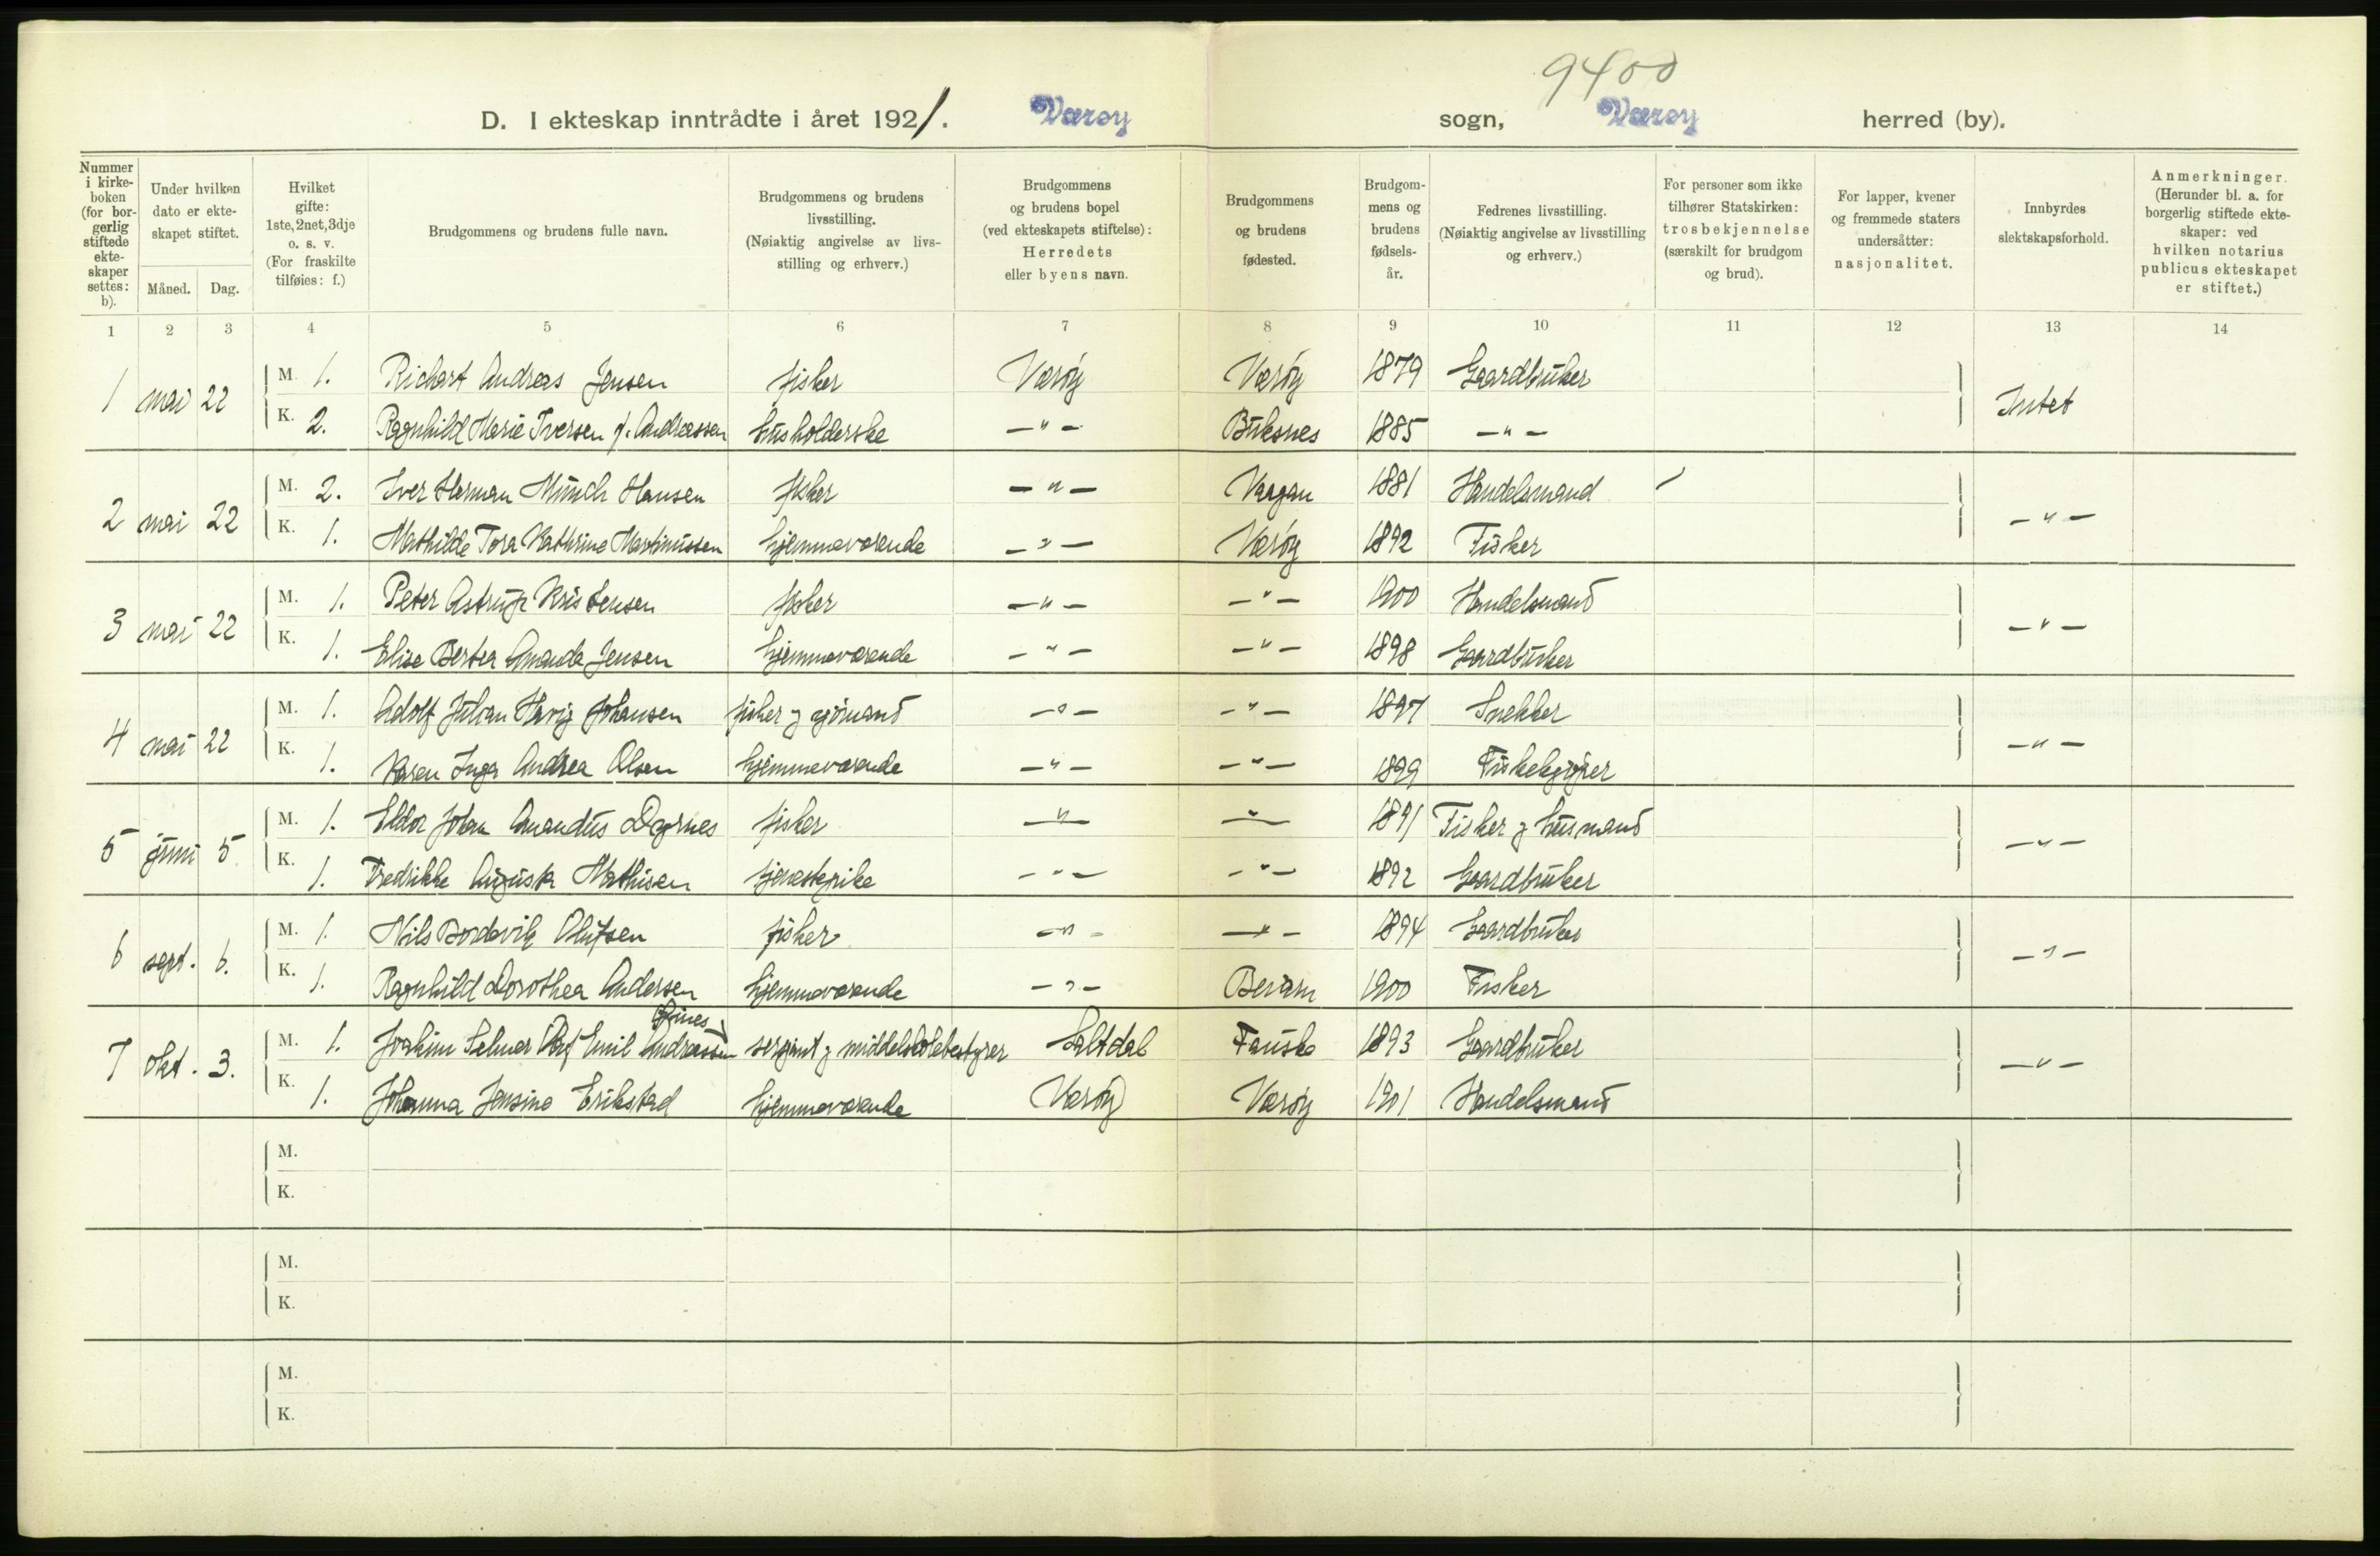 9400
D. I ekteskap inntrådte i året 1921. Værøy sogn, Værøy herred (by).
Nummer i kirke-boken (for bor-gerlig stiftede ekte-skaper settes: b).
Under hvilken dato er ekte-skapet stiftet.
Måned. Dag.
Hvilket gifte: 1ste, 2net, 3dje o. s. v. (For fraskilte tilføies: f.)
Brudgommens og brudens fulle navn.
Brudgommens og brudens livsstilling. (Nøiaktig angivelse av livs-stilling og erhverv.)
Brudgommens og brudens bopel (ved ekteskapets stiftelse): Herredets eller byens navn.
Brudgommens og brudens fødested.
Brudgom-mens og brudens fødsels-år.
Fedrenes livsstilling. (Nøiaktig angivelse av livsstilling og erhverv.)
For personer som ikke tilhører Statskirken: trosbekjennelse (særskilt for brudgom og brud).
For lapper, kvener og fremmede staters undersåtter: nasjonalitet.
Innbyrdes slektskapsforhold.
Anmerkninger. (Herunder bl. a. for borgerlig stiftede ekte-skaper: ved hvilken notarius publicus ekteskapet er stiftet.)
1 2 3 4 5 6 7 8 9 10 11 12 13 14
1 mai 22 M. 1. Richart Andreas Jensen fisker Værøy Værøy 1879 Gaardbruker Intet
K. 2. Ragnhild Marie Iversen f. Andreassen husholderske —"— Buksnes 1885 —"—
2 mai 22 M. 2. Iver Herman Münch Hansen fisker —"— Vaagan 1881 Handelsmand —"—
K. 1. Mathilde Tora Kathrine Martinussen hjemmeværende —"— Værøy 1892 Fisker
3 mai 22 M. 1. Peter Astrup Kristensen fisker —"— —"— 1900 Handelsmand —"—
K. 1. Elise Bertea Amanda Jensen hjemmeværende —"— —"— 1898 Gaardbruker
4 mai 22 M. 1. Adolf Julian Havig Johansen fisker og sjömand —"— —"— 1897 Snekker —"—
K. 1. Karen Inga Andrea Olsen hjemmeværende —"— —"— 1899 Fiskekjøper
5 juni 5 M. 1. Eldor Johan Amandus Dypnes fisker —"— —"— 1891 Fisker og husmand —"—
K. 1. Fredrikke Augusta Mathisen tjenestepike —"— —"— 1892 Gaardbruker
6 sept. 6. M. 1. Nils Bordevik Olufsen fisker —"— —"— 1894 Gaardbruker —"—
K. 1. Ragnhild Dorothea Andersen hjemmeværende —"— 1900 Fisker
7 okt. 3. M. 1. Joakim Selmer Olaf Emil Andreassen sersjant og middelskolebestyrer Saltdal Fauske 1893 Gaardbruker —"—
K. 1. Johanna Jensine Erikstad hjemmeværende Værøy Værøy 1901 Handelsmand
M.
K.
M.
K.
M.
K.